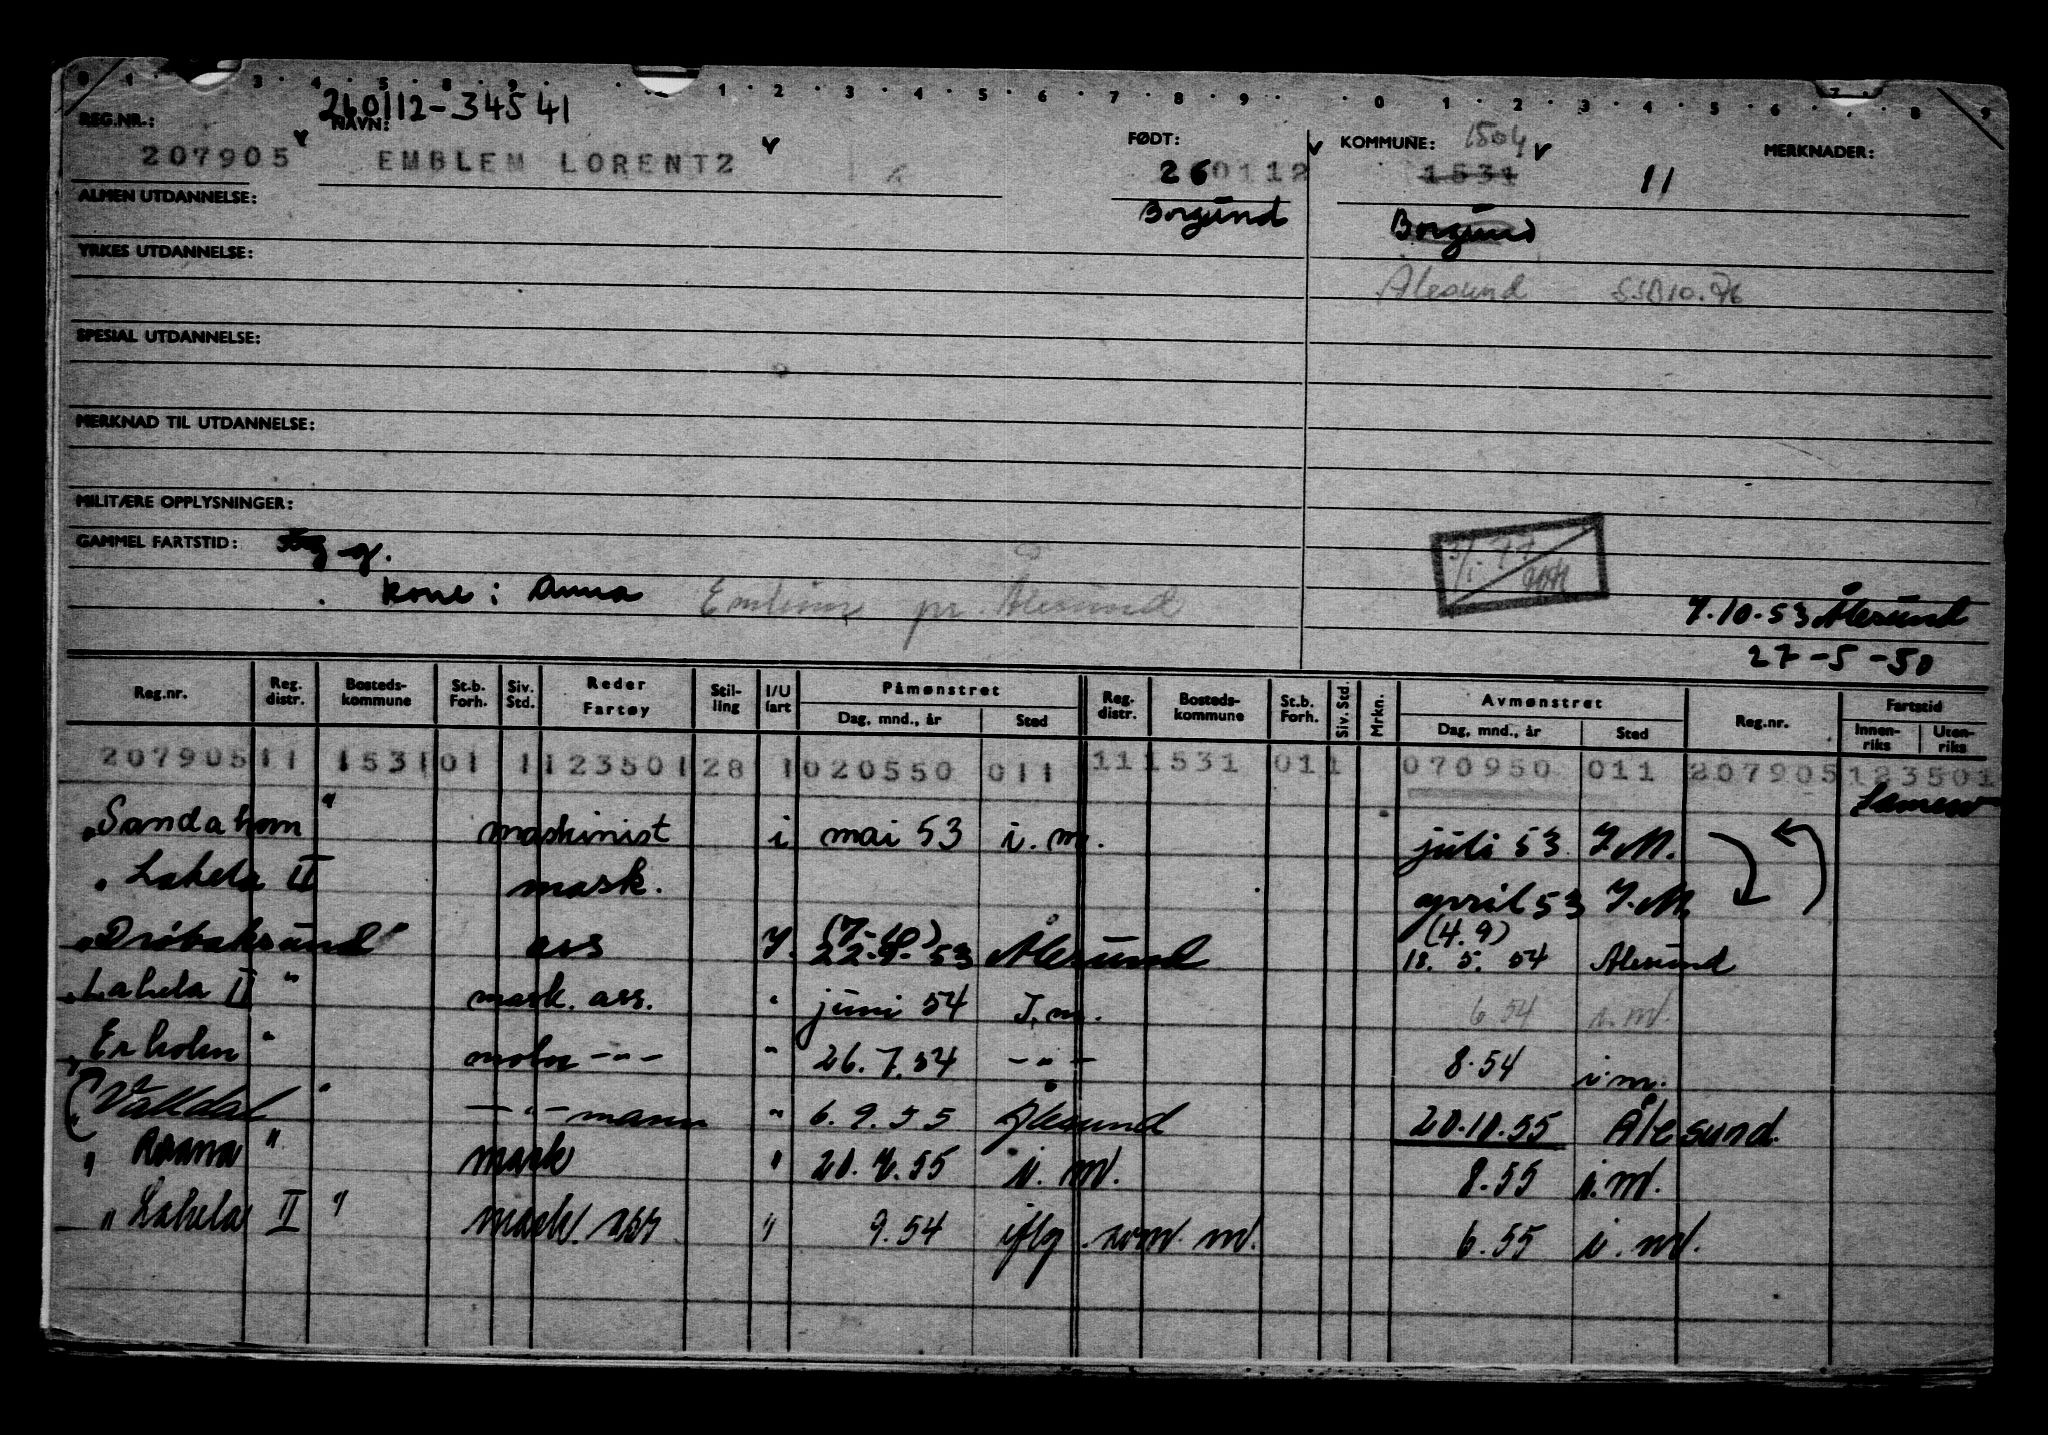 0 1 3 4 5 8 9 1 2 3 4 5 6 7 8 9 0 1 2 3 4 5 6 7 8 9
260112-34541
REG.NR.: NAVN: FØDT: KOMMUNE: 1504 MERKNADER:
207905 EMBLEM LORENTZ 260112 1531 11
ALMEN UTDANNELSE: Borgund Borgund
YRKES UTDANNELSE:
Ålesund SSB10.76
SPESIAL UTDANNELSE:
MERKNAD TIL UTDANNELSE:
MILITÆRE OPPLYSNINGER:
GAMMEL FARTSTID:
Kone: Anna pr. Ålesund
7.10.53 Ålesund
27-5-50
Reg.nr. Reg. distr. Bosteds-kommune St.b. Forh. Siv. Std. Reder Fartøy Stil-ling I/U fart Påmønstret Dag, mnd., år Sted Reg. distr. Bosteds-kommune St.b. Forh. Siv. Std. Mrkn. Avmønstret Dag, mnd., år Sted Reg.nr. Fartstid Innen-riks Uten-riks
207905 11 1531 01 1 123501 28 1 020550 011 11 1531 01 1 070950 011 207905 123501
"Sandahorn" maskinist i mai 53 i.m. juli 53 I.M.
"Lakela II mask. april 53 I.M.
"Drøbaksund" ass I. 22.9.53 Ålesund (4.9) 18.5.54 Ålesund
"Lakela II" mask. ass. " juni 54 I.m. 6 54 i.m.
"Erholm" motor -"- " 26.7.54 -"- 8.54 i.m.
("Valldal" -"- mann " 6.9.55 Ålesund 20.10.55 Ålesund.
" Raana " mask " i.m. 8.55 i.m.
" Lakela II " mask. ass " 9.54 iflg. rom. m. 6.55 i.m.